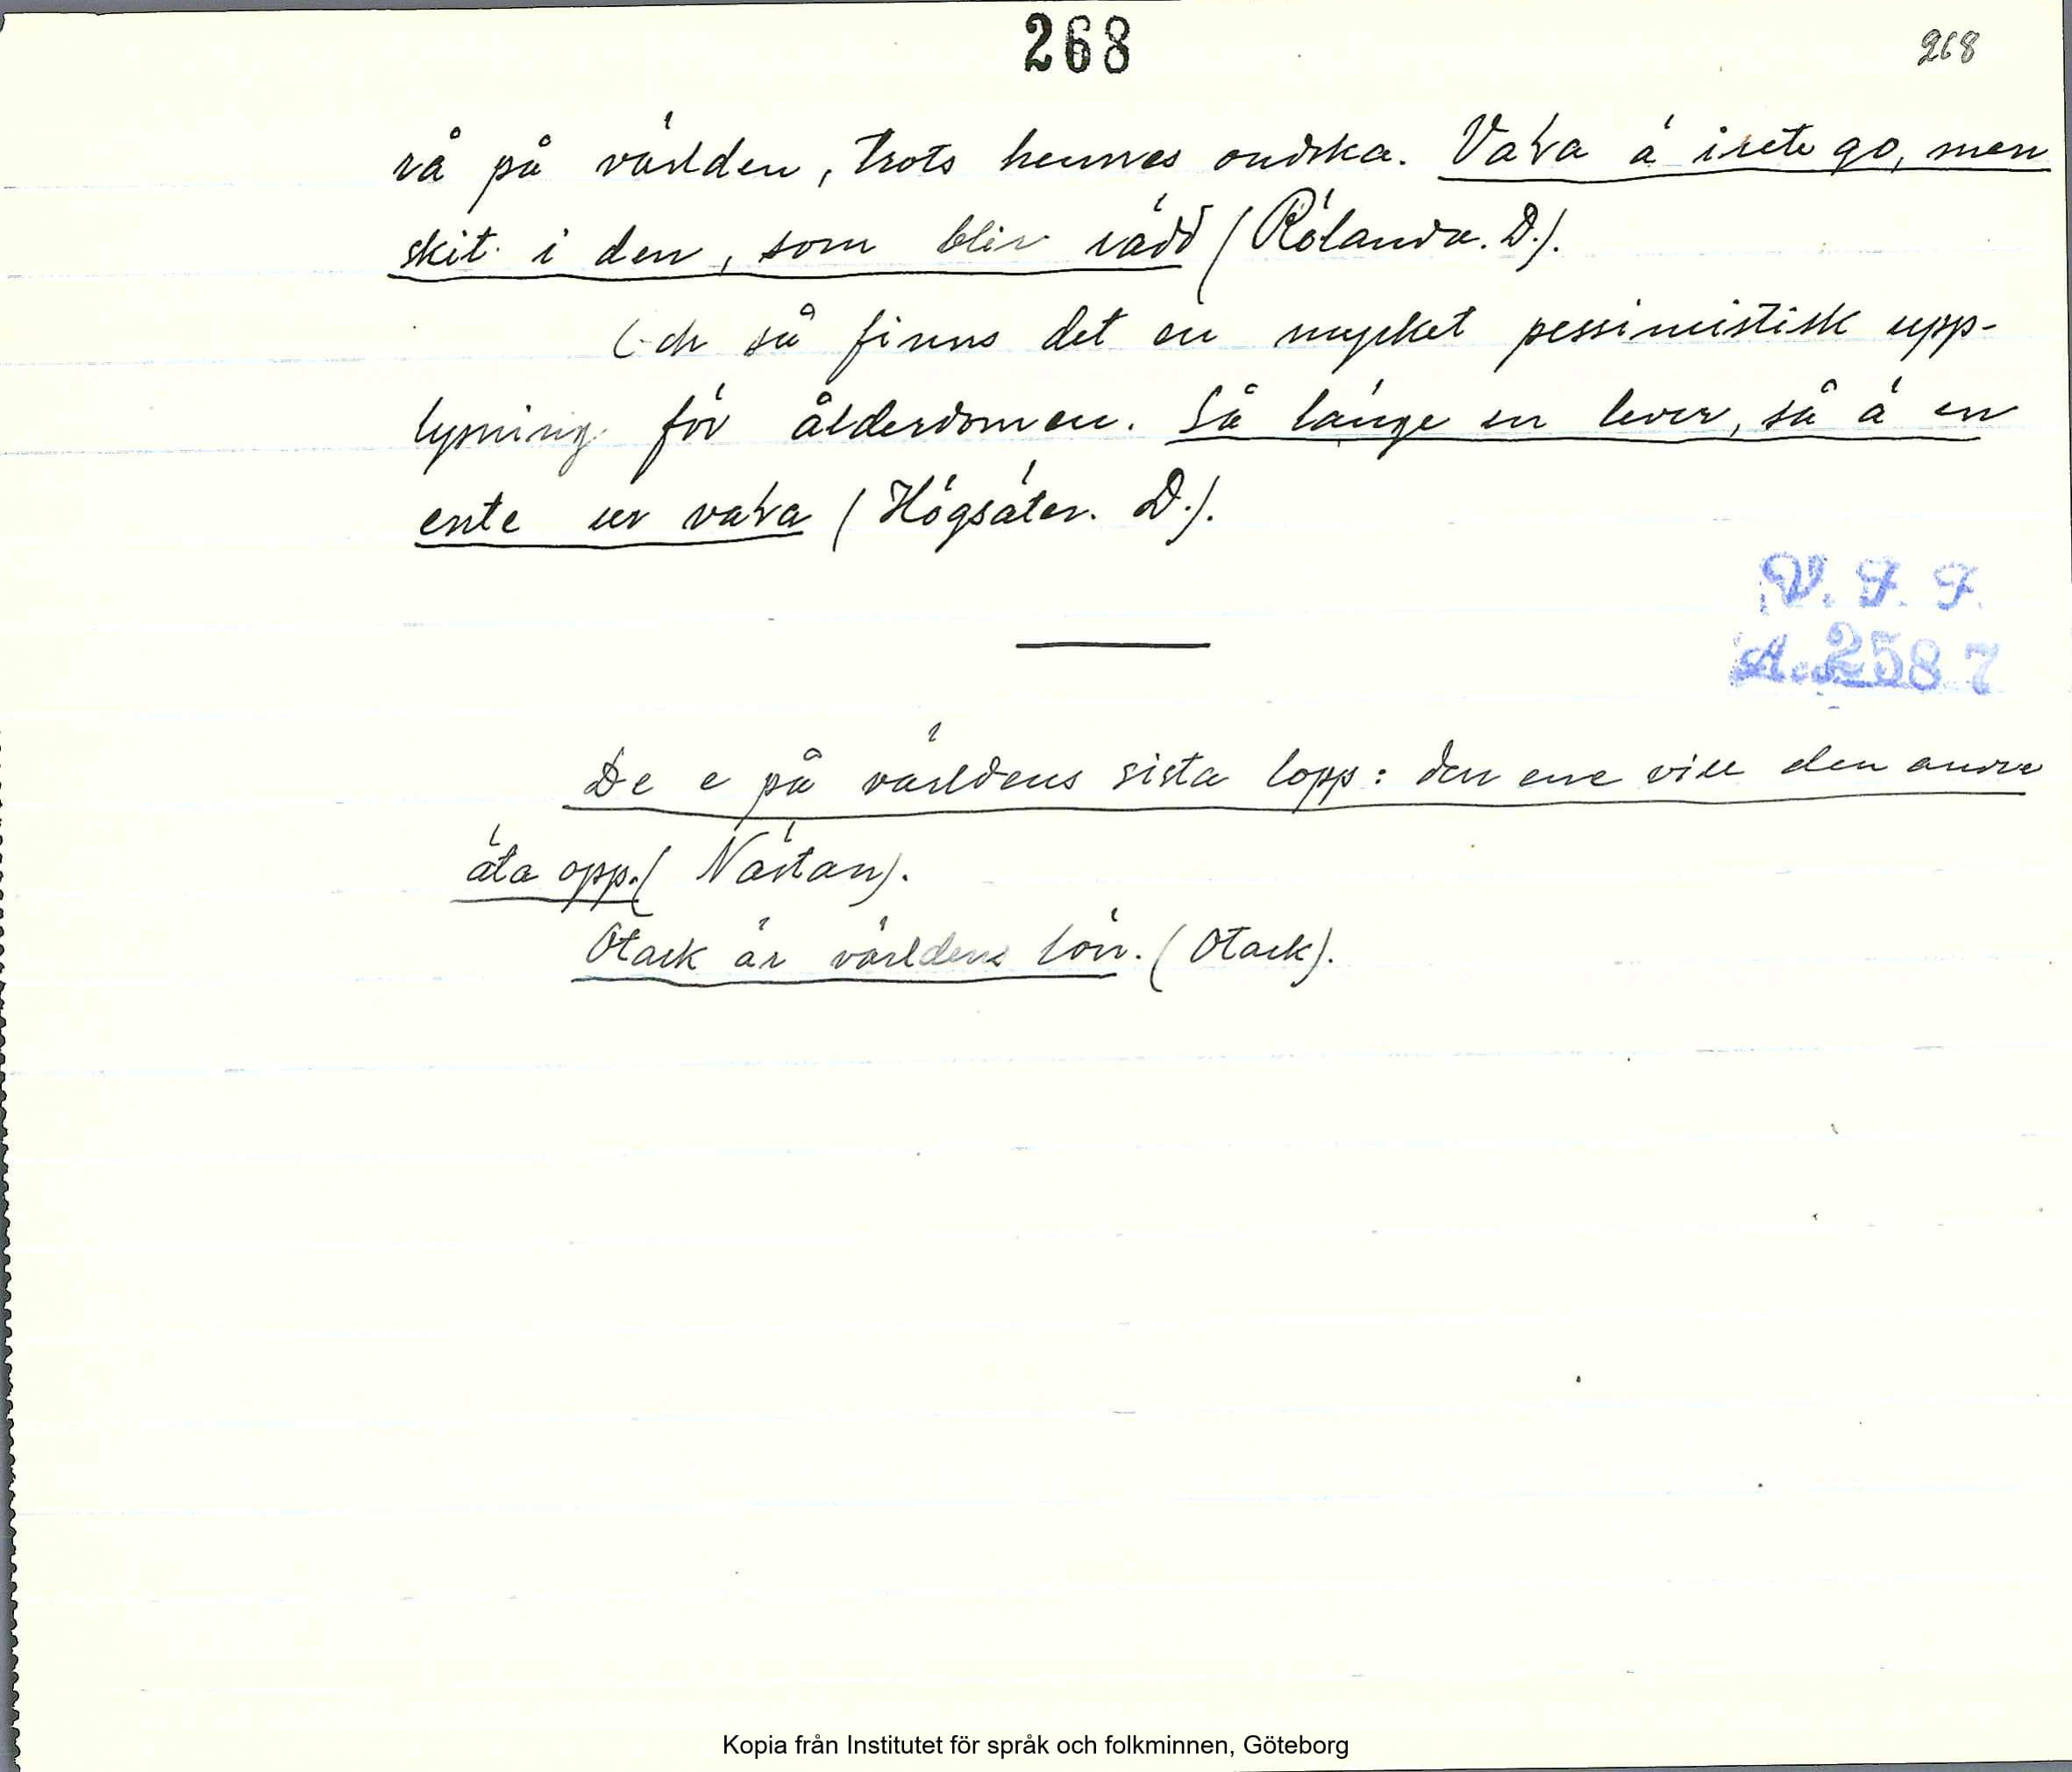 268
268
rå på världen, trots hennes ondska. Vala ä inte go, men
skit i den, som blir rädd (Rölanda. D.).
Och så finns det en mycket pessimistisk upp-
lysning för ålderdomen. Så länge en lever, så ä en
ente ur vala (Högsäter. D.).
V. F. F.
A. 2587
De e på världens sista lopp: den ene vill den andre
äta opp. (Nästan).
Otack är världens lön. (Otack).
Kopia från Institutet för språk och folkminnen, Göteborg